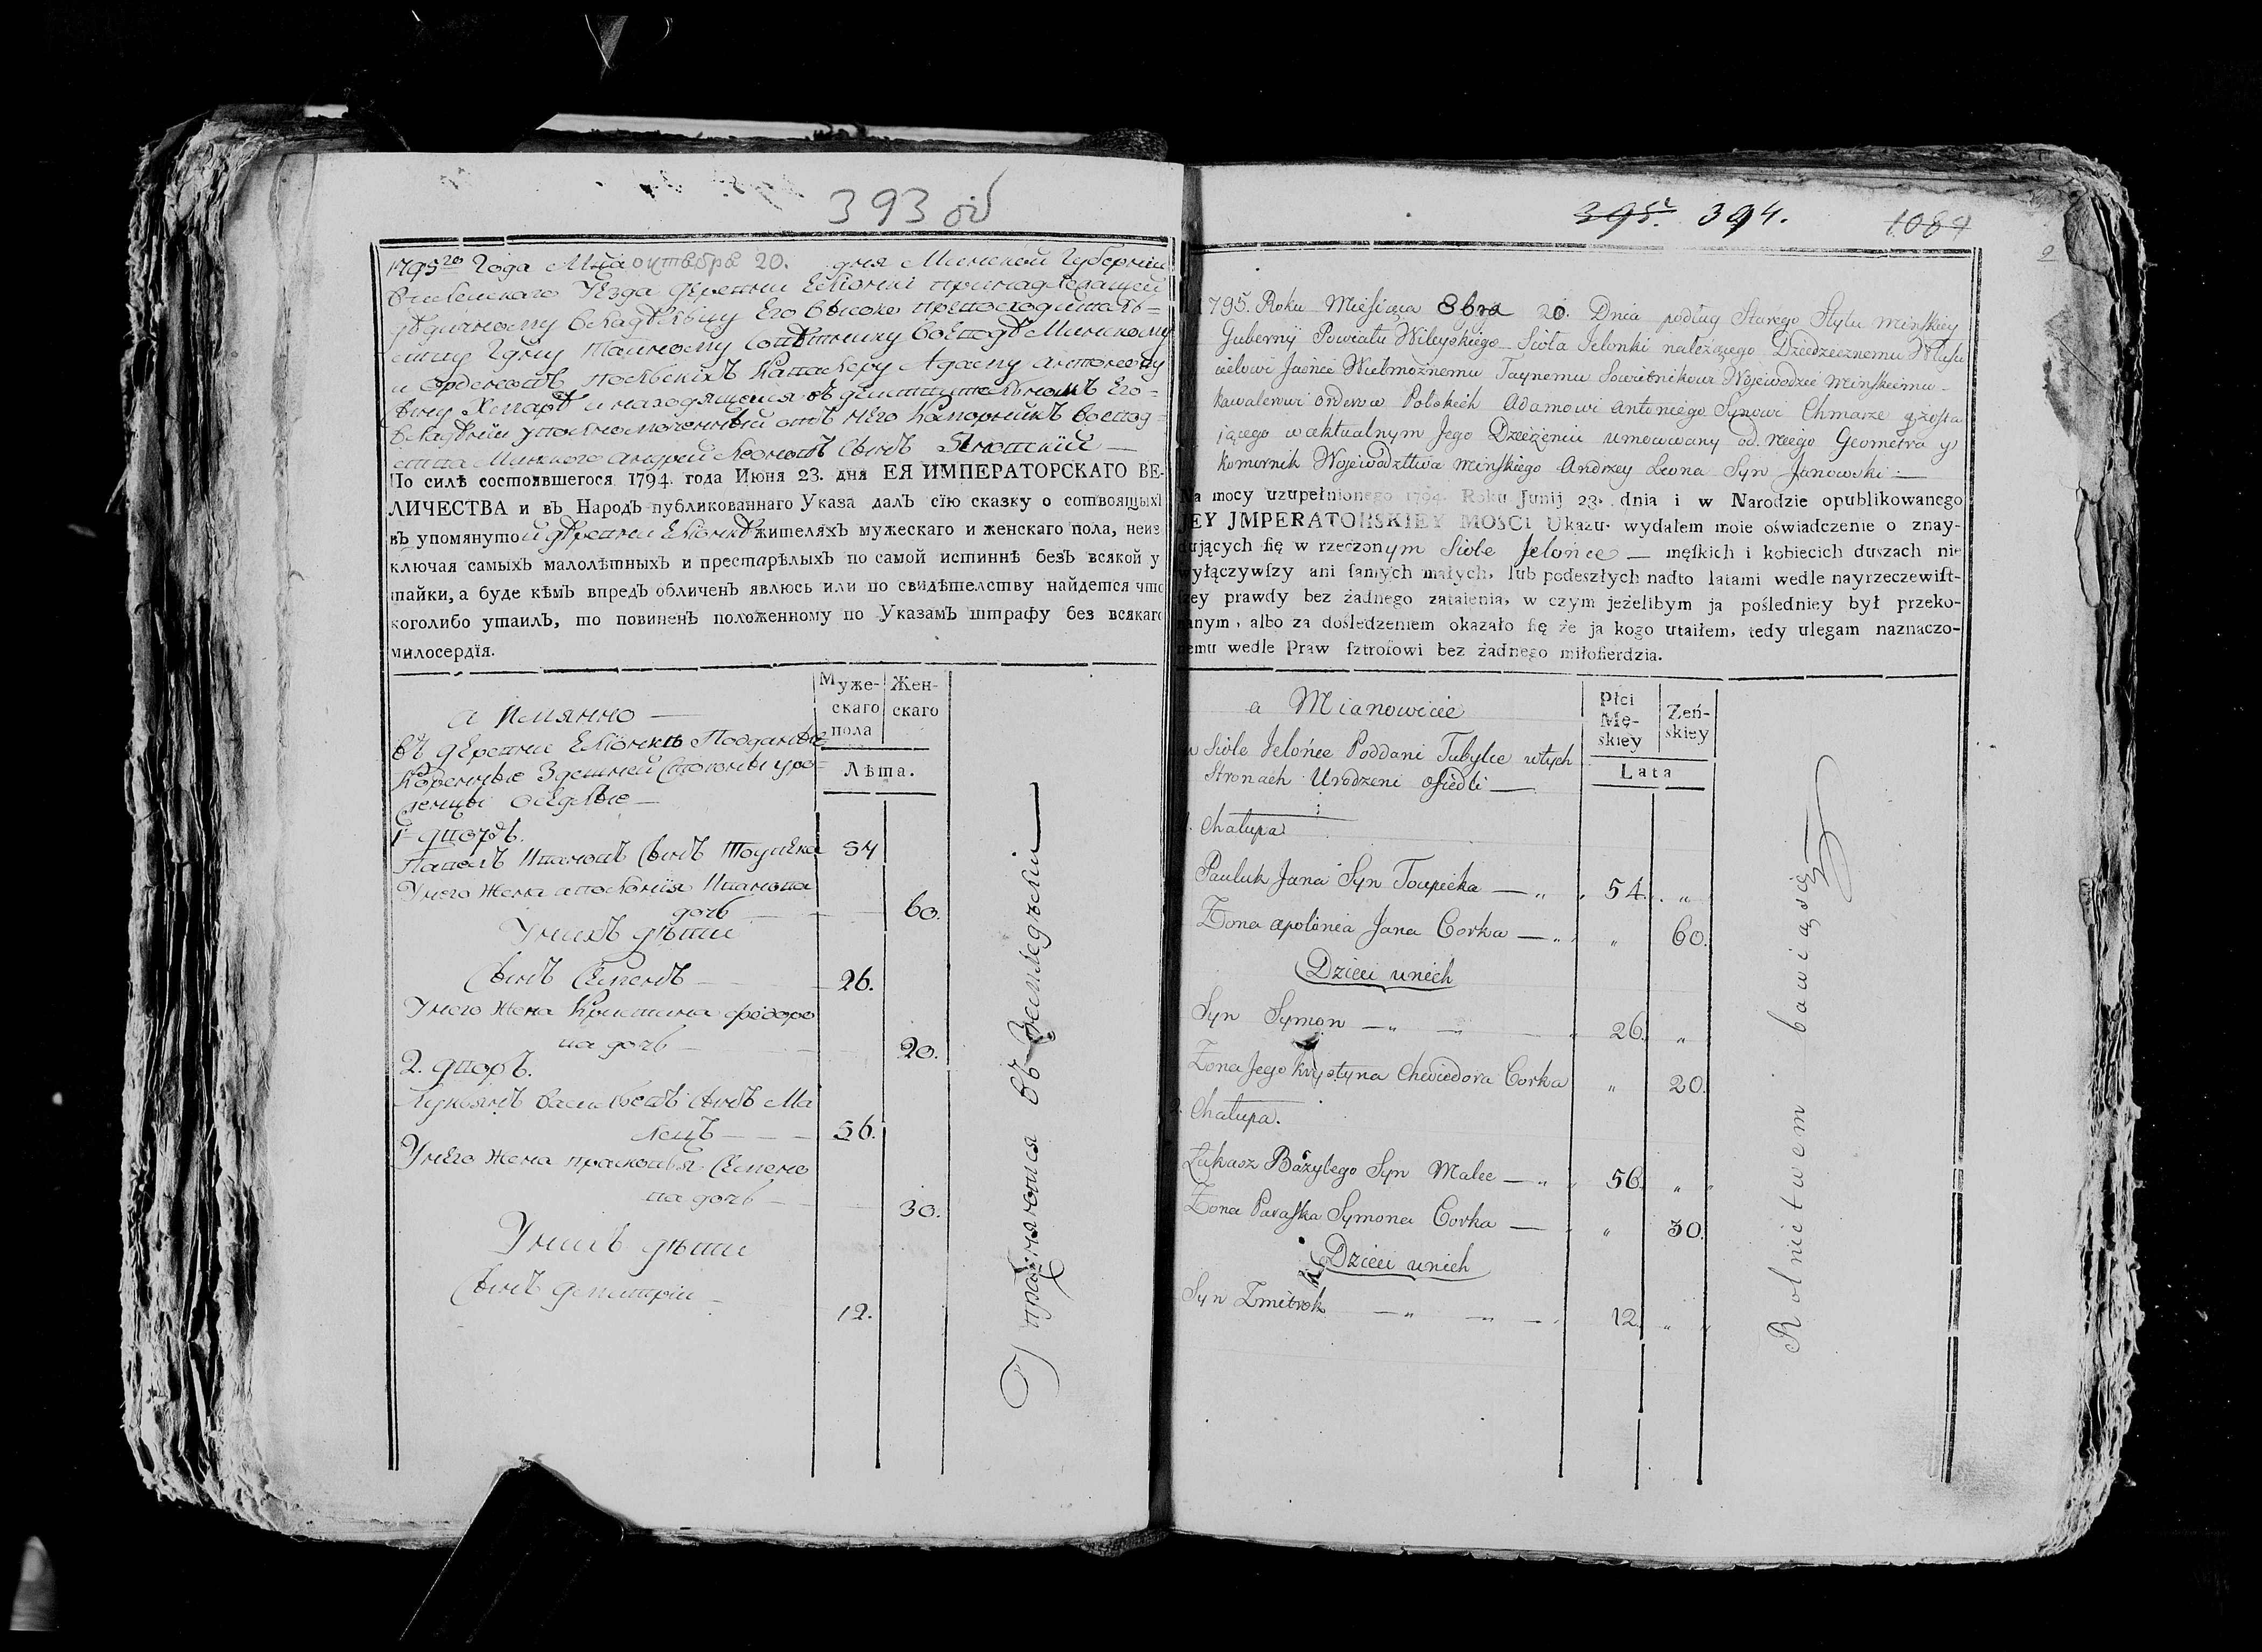 393 об
1795го Года Мца октебре 20. дня Минской Губерніи
Вилейскаго Уезда деревни Елѣонкі принадлежащей
дѣдичному владѣльцу Его высоко превосходитель=
ству Гдну Тайному Совѣтнику воеводѣ Минскому
и Орденовъ польскихъ Кавалеру Адаму Антонову
сыну Хмарѣ и находящейся въ действительномъ Его=
владѣніи уполномоченный отъ него Каморникъ воевод=
ства Минского Андрей Леоновъ сынъ Яновский —
По силѣ состоявшегося 1794. года Июня 23. дня ЕЯ ИМПЕРАТОРСКАГО ВЕ-
ЛИЧЕСТВА и въ Народъ публикованнаго Указа далъ сїю сказку о состоящыхъ
въ упомянутой деревни Елѣонкѣ жителяхъ мужескаго и женскаго пола, неиз
ключая самыхъ малолѣтныхъ и престарѣлыхъ по самой истиннѣ безъ всякой у
тайки, а буде кѣмъ впредъ обличенъ явлюсь или по свидѣтелству найдется что
коголибо утаилъ, то повиненъ положенному по Указамъ штрафу без всякаго
милосердїя.
Муже-
скаго
пола
Жен-
скаго
Лѣта.
а Имянно —
въ деревни Елѣонкѣ Подданые
Коренные Здешней Стороны уро=
женцы оседлые —
1 дворъ.
Павелъ Ивановъ сынъ Тоупека 54
У него жена аполонія Иванова
дочь — 60.
У нихъ дѣти
Сынъ Семенъ — 26.
У него жена Кристина федоро
ва дочь — 20.
2. дворъ.
Лукьянъ Васильевъ сынъ Ма
лецъ — 56.
У него жена прасковья Семено
ва дочь — 30.
У нихъ дѣти
Сынъ дмитрій — 12.
Упражняются въ земледѣліи
395. 394.
1084
1795. Roku Miesiąca 8bra 20. Dnia podług Starego Stylu Minſkiey
Gubernij Powiatu Wileyskiego Sioła Jelonki należącego Dziedzicznemu Właści
cielowi Jaśnie Wielmożnemu Taynemu Sowietnikowi Wojewodzie Minſkiemu
Kawalerowi Orderow Polskich Adamowi Antoniego Synowi Chmarze y zosta
jącego w aktualnym Jego Dzierżeniu umocowany od niego Geometra y
Komornik Wojewodztwa Minſkiego Andrzey Leona Syn Janowski —
Na mocy uzupełnionego 1794. Roku Junij 23. dnia i w Narodzie opublikowanego
JEY JMPERATORSKIEY MOSCI Ukazu. wydałem moie oświadczenie o znay-
dujących ſię w rzeczonym Siole Jelońce — męſkich i kobiecich duszach nie
wyłączywſzy ani ſamych małych, lub podeszłych nadto latami wedle nayrzeczewiſt-
ſzey prawdy bez żadnego zataienia, w czym jeżelibym ja poſledniey był przeko-
nanym, albo za doſledzeniem okazało ſię że ja kogo utaiłem, tedy ulegam naznaczo-
nemu wedle Praw ſztrofowi bez żadnego miłoſierdzia.
Płci
Mę-
skiey
Żeń-
skiey
Lata
a Mianowicie
w Siole Jelońce Poddani Tubylce w tych
Stronach Urodzeni Osiedli —
1. Chałupa
Pauluk Jana Syn Toupieka — „ 54. „
Żona apolonia Jana Corka — „ „ 60.
Dzieci u nich
Syn Symon — „ — 26. „
Żona Jego Krystyna Chwiedora Corka „ 20.
2. Chałupa.
Łukasz Bazylego Syn Malec — „ 56. „
Żona Paraſka Symona Corka — „ 30.
Dzieci u nich
Syn Zmitrok — „ — 12. „
Rolnictwem bawią się